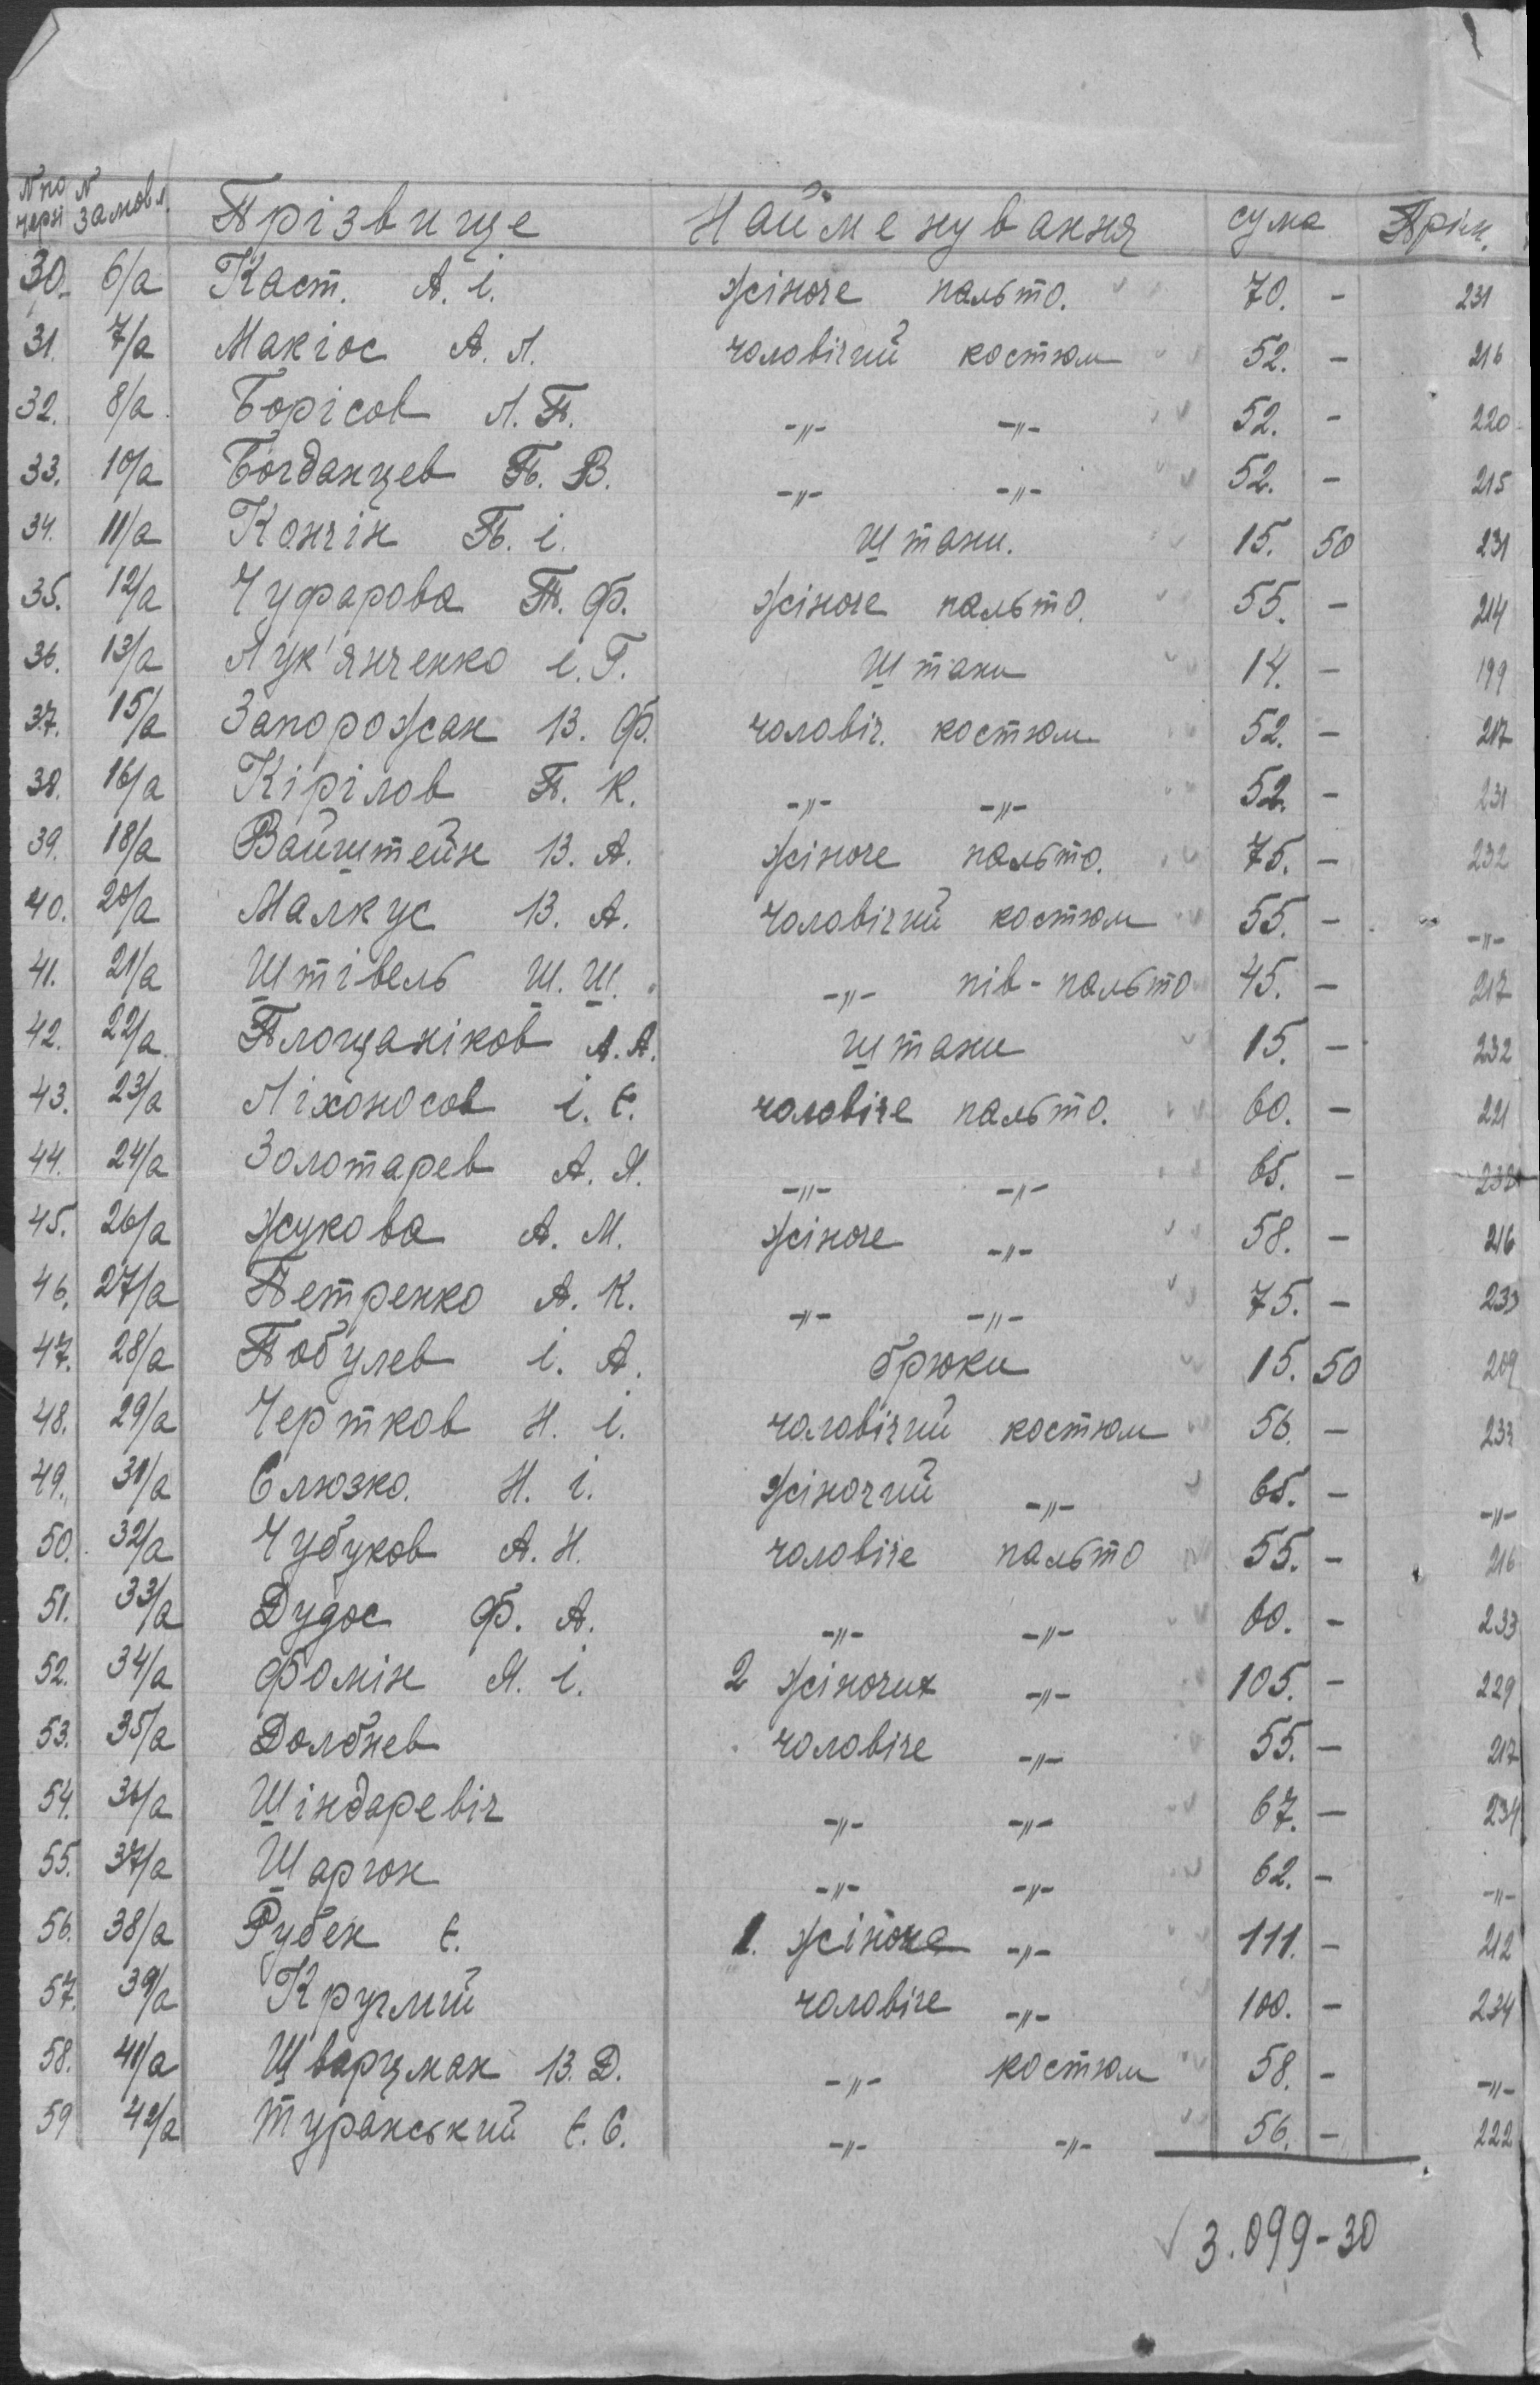 № по черзі № замовл. Прізвище Найменування сума Прім.
30. 6/а Каст. А. і. жіноче пальто. 70. - 231
31. 7/а Макгос А. Л. чоловічий костюм 52. - 216
32. 8/а Борісов Л. П. -"- -"- 52. - 220
33. 10/а Богданцев П. В. -"- -"- 52. - 215
34. 11/а Кончін П. і. штани. 15. 50 231
35. 12/а Чуфарова П. Ф. жіноче пальто. 55. - 214
36. 13/а Лук'янченко і. Г. штани 14. - 199
37. 15/а Запорожан В. Ф. чоловіч. костюм 52. - 217
38. 16/а Кірілов П. К. -"- -"- 52. - 231
39. 18/а Вайштейн В. А. жіноче пальто. 75. - 232
40. 20/а Малкус В. А. чоловічий костюм 55. - -"-
41. 21/а Штівель Ш. Ш. -"- пів-пальто 45. - 217
42. 22/а Площаніков А. А. штани 15. - 232
43. 23/а Ліхоносов і. Є. чоловіче пальто. 60. - 221
44. 24/а Золотарев А. Я. -"- -"- 65. - 232
45. 26/а Жукова А. М. жіноче -"- 58. - 216
46. 27/а Петренко А. К. -"- -"- 75. - 233
47. 28/а Побулев і. А. брюки 15. 50 209
48. 29/а Чертков Н. і. чоловічий костюм 56. - 233
49. 31/а Слюзко. Н. і. жіночий -"- 65. - -"-
50. 32/а Чубуков А. Н. чоловіче пальто 55. - 216
51. 33/а Дудос Ф. А. -"- -"- 60. - 233
52. 34/а Фомін Я. і. 2 жіночих -"- 105. - 229
53. 35/а Долбнев чоловіче -"- 55. - 217
54. 36/а Шіндаревіч -"- -"- 67. - 234
55. 37/а Шаргон -"- -"- 62. - -"-
56. 38/а Рубен Є. 1. жіноче -"- 111. - 212
57. 39/а Круглий чоловіче -"- 100. - 234
58. 41/а Шварцман В. Д. -"- костюм 58. - -"-
59 42/а Туранський Є. С. -"- -"- 56. - 222
3.099-30